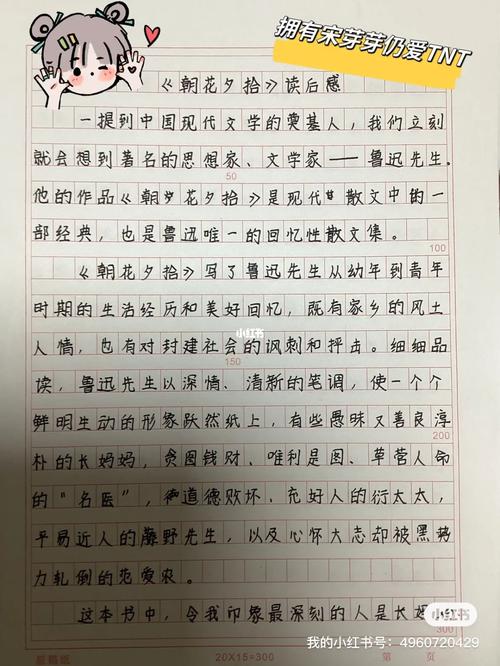 拥有宋芽芽仍爱TNT
《朝花夕拾》读后感
一提到中国现代文学的奠基人，我们立刻
就会想到著名的思想家、文学家——鲁迅先生。
50
他的作品《朝花夕拾》是现代散文中的一
部经典，也是鲁迅唯一的回忆性散文集。
100
《朝花夕拾》写了鲁迅先生从幼年到青年
时期的生活经历和美好回忆，既有家乡的风土
小红书
人情，也有对封建社会的讽刺和抨击。细细品
150
读，鲁迅先生以深情、清新的笔调，使一个个
鲜明生动的形象跃然纸上，有些愚昧又善良淳
200
朴的长妈妈，贪图钱财、唯利是图、草菅人命
的“名医”，道德败坏、充好人的衍太太，
平易近人的藤野先生，以及心怀大志却被黑势
力轧倒的范爱农。
这本书中，令我印象最深刻的人是长妈
小红书
300
20X15=300
第 页
我的小红书号：4960720429